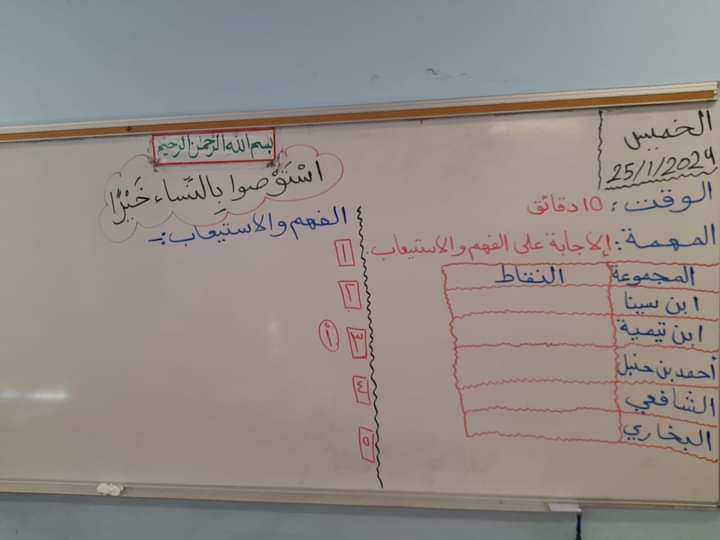 بسم الله الرحمن الرحيم
اسْتَوْصوا بِالنّساء خَيْرًا
الخميس
25/1/2024
الوقت: 10 دقائق
المهمة: الإجابة على الفهم والاستيعاب.
المجموعة النقاط
ابن سينا
ابن تيمية
أحمد بن حنبل
الشافعي
البخاري
الفهم والاستيعاب:-
١
٢
٣ أ
٤
٥